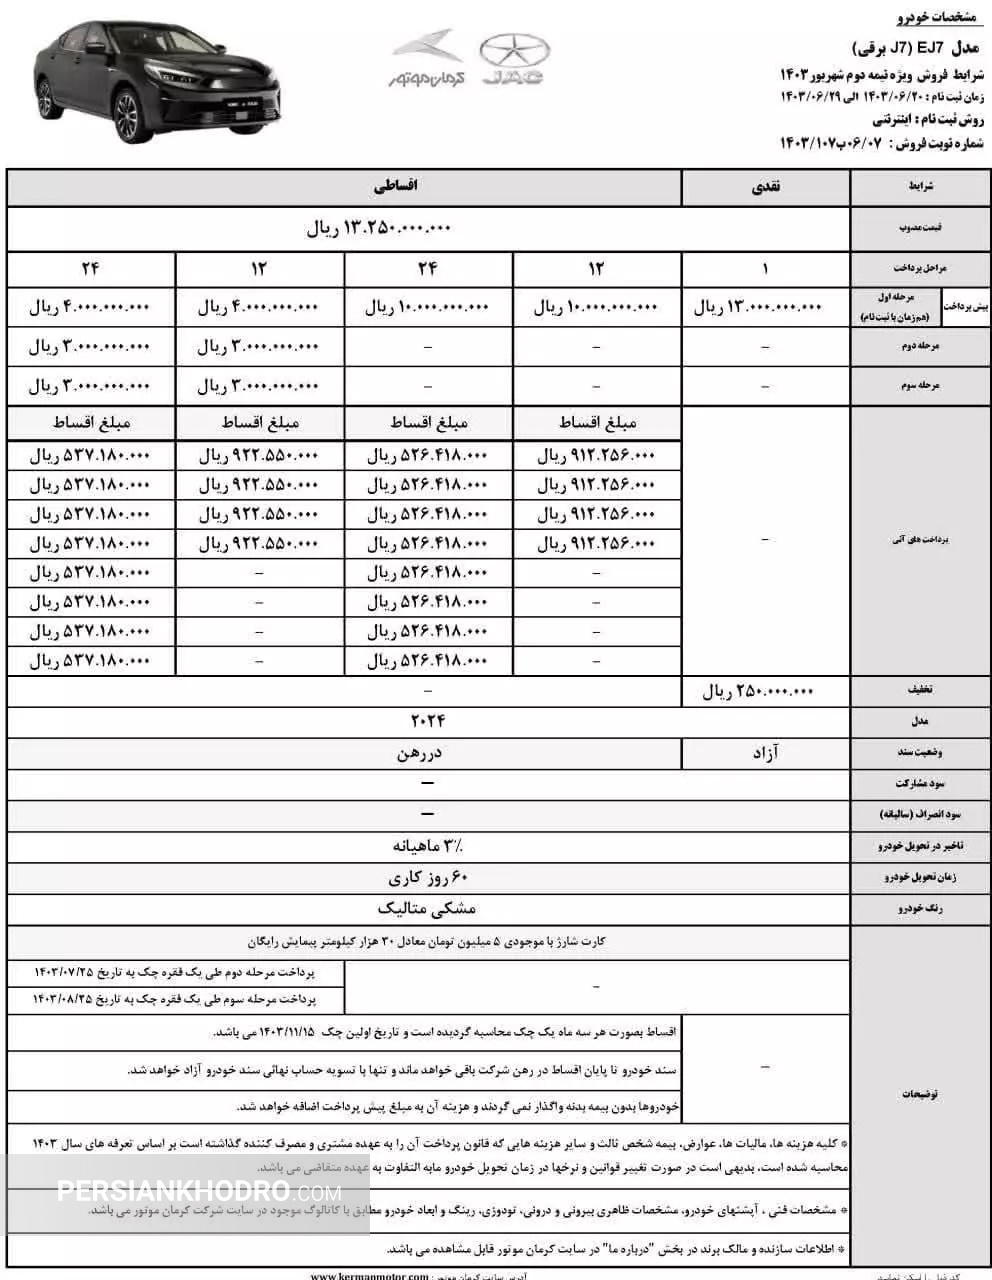 مشخصات خودرو
مدل EJ7 (J7 برقی)
شرایط فروش ویژه نیمه دوم شهریور ۱۴۰۳
زمان ثبت نام : ۱۴۰۳/۰۶/۲۰ الی ۱۴۰۳/۰۶/۲۹
روش ثبت نام : اینترنتی
شماره نوبت فروش : ۰۶/۰۷ب۱۴۰۳/۱۰۷
JAC
کرمان موتور
شرایط نقدی اقساطی
قیمت مصوب ۱۳.۲۵۰.۰۰۰.۰۰۰ ریال
مراحل پرداخت ۱ ۱۲ ۲۴ ۱۲ ۲۴
پیش پرداخت مرحله اول (هم زمان با ثبت نام) ۱۳.۰۰۰.۰۰۰.۰۰۰ ریال ۱۰.۰۰۰.۰۰۰.۰۰۰ ریال ۱۰.۰۰۰.۰۰۰.۰۰۰ ریال ۴.۰۰۰.۰۰۰.۰۰۰ ریال ۴.۰۰۰.۰۰۰.۰۰۰ ریال
مرحله دوم – – – ۳.۰۰۰.۰۰۰.۰۰۰ ریال ۳.۰۰۰.۰۰۰.۰۰۰ ریال
مرحله سوم – – – ۳.۰۰۰.۰۰۰.۰۰۰ ریال ۳.۰۰۰.۰۰۰.۰۰۰ ریال
پرداخت های آتی – مبلغ اقساط مبلغ اقساط مبلغ اقساط مبلغ اقساط
۹۱۲.۲۵۶.۰۰۰ ریال ۵۲۶.۴۱۸.۰۰۰ ریال ۹۲۲.۵۵۰.۰۰۰ ریال ۵۳۷.۱۸۰.۰۰۰ ریال
۹۱۲.۲۵۶.۰۰۰ ریال ۵۲۶.۴۱۸.۰۰۰ ریال ۹۲۲.۵۵۰.۰۰۰ ریال ۵۳۷.۱۸۰.۰۰۰ ریال
۹۱۲.۲۵۶.۰۰۰ ریال ۵۲۶.۴۱۸.۰۰۰ ریال ۹۲۲.۵۵۰.۰۰۰ ریال ۵۳۷.۱۸۰.۰۰۰ ریال
۹۱۲.۲۵۶.۰۰۰ ریال ۵۲۶.۴۱۸.۰۰۰ ریال ۹۲۲.۵۵۰.۰۰۰ ریال ۵۳۷.۱۸۰.۰۰۰ ریال
– ۵۲۶.۴۱۸.۰۰۰ ریال – ۵۳۷.۱۸۰.۰۰۰ ریال
– ۵۲۶.۴۱۸.۰۰۰ ریال – ۵۳۷.۱۸۰.۰۰۰ ریال
– ۵۲۶.۴۱۸.۰۰۰ ریال – ۵۳۷.۱۸۰.۰۰۰ ریال
– ۵۲۶.۴۱۸.۰۰۰ ریال – ۵۳۷.۱۸۰.۰۰۰ ریال
تخفیف ۲۵۰.۰۰۰.۰۰۰ ریال –
مدل ۲۰۲۴
وضعیت سند آزاد دررهن
سود مشارکت –
سود انصراف (سالیانه) –
تاخیر در تحویل خودرو ۳٪ ماهیانه
زمان تحویل خودرو ۶۰ روز کاری
رنگ خودرو مشکی متالیک
توضیحات
کارت شارژ با موجودی ۵ میلیون تومان معادل ۳۰ هزار کیلومتر پیمایش رایگان
– پرداخت مرحله دوم طی یک فقره چک به تاریخ ۱۴۰۳/۰۷/۲۵
پرداخت مرحله سوم طی یک فقره چک به تاریخ ۱۴۰۳/۰۸/۲۵
– اقساط بصورت هر سه ماه یک چک محاسبه گردیده است و تاریخ اولین چک ۱۴۰۳/۱۱/۱۵ می باشد.
سند خودرو تا پایان اقساط در رهن شرکت باقی خواهد ماند و تنها با تسویه حساب نهائی سند خودرو آزاد خواهد شد.
خودروها بدون بیمه بدنه واگذار نمی گردند و هزینه آن به مبلغ پیش پرداخت اضافه خواهد شد.
* کلیه هزینه ها، مالیات ها، عوارض، بیمه شخص ثالث و سایر هزینه هایی که قانون پرداخت آن را به عهده مشتری و مصرف کننده گذاشته است بر اساس تعرفه های سال ۱۴۰۳
محاسبه شده است، بدیهی است در صورت تغییر قوانین و نرخها در زمان تحویل خودرو مابه التفاوت به عهده متقاضی می باشد.
* مشخصات فنی ، آپشنهای خودرو، مشخصات ظاهری بیرونی و درونی، تودوزی، رینگ و ابعاد خودرو مطابق با کاتالوگ موجود در سایت شرکت کرمان موتور می باشد.
* اطلاعات سازنده و مالک برند در بخش "درباره ما" در سایت کرمان موتور قابل مشاهده می باشد.
PERSIANKHODRO.COM
آدرس سایت کرمان موتور : www.kermanmotor.com